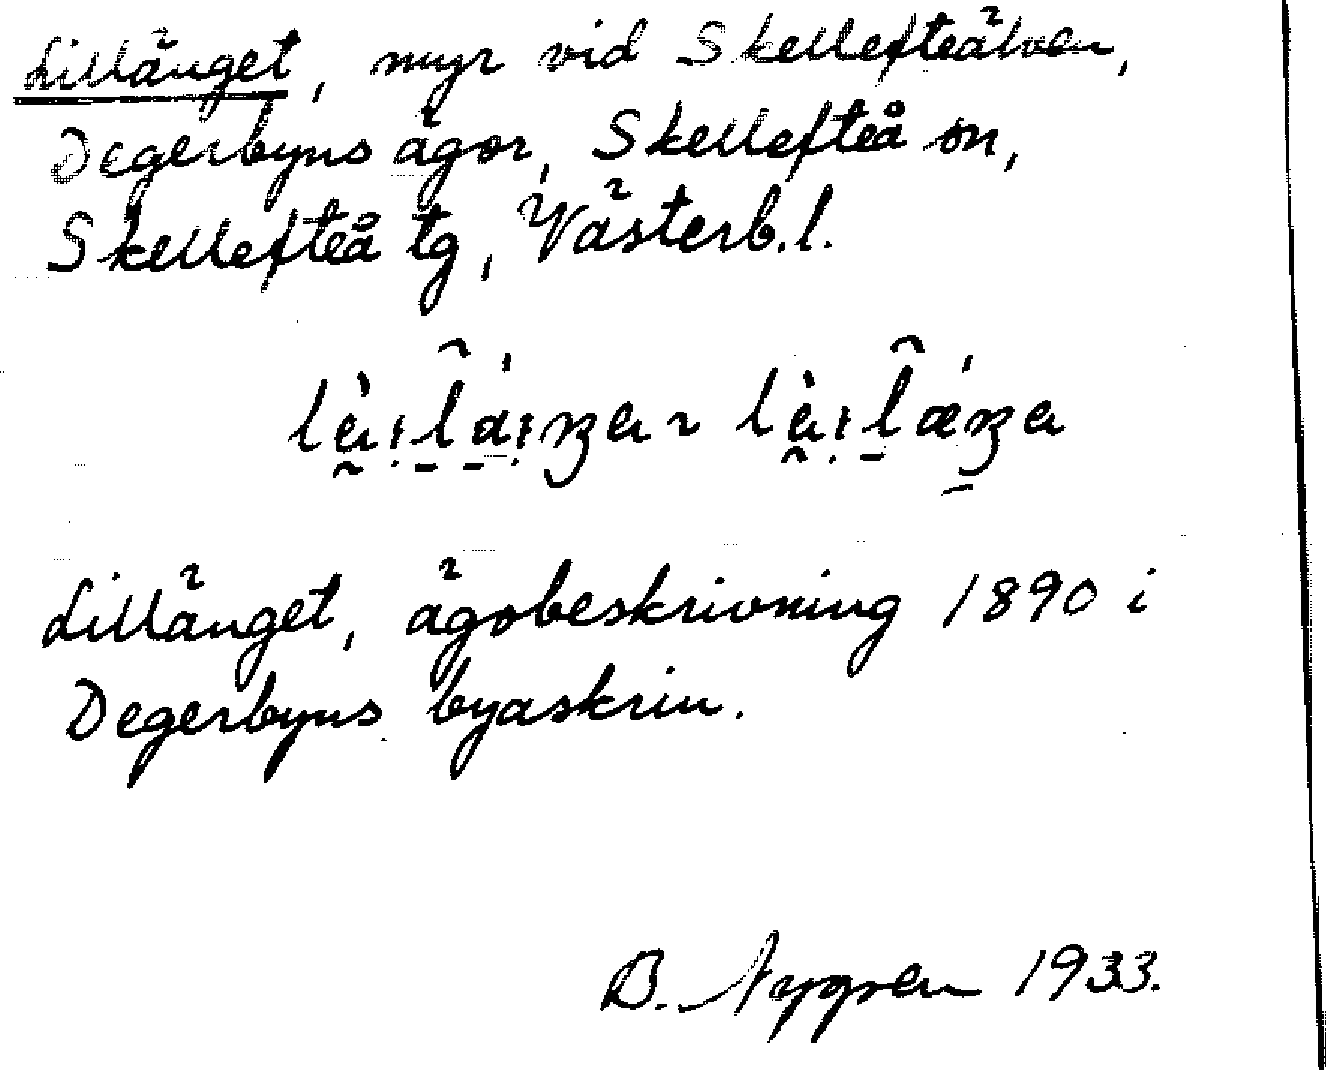 Lillänget, myr vid Skellefteälven,
Degerbyns ägor, Skellefteå sn,
Skellefteå tg, Västerb. l.
Lillänget, ägobeskrivning 1890 i
Degerbyns byaskrin.
B. Nygren 1933.